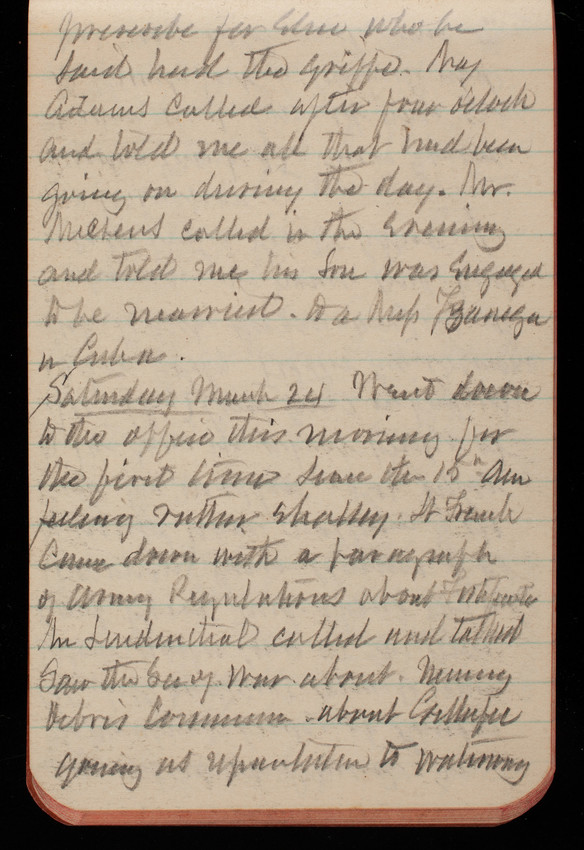 prescribe for Elsie who he
said had the Grippe. Maj
Adams called after four o'clock
and told me all that had been
going on during the day. Mr.
called in the Evening
and told me his Son was Engaged
to be married. to a Miss
in Cuba.
Saturday March 24 Went down
to the office this morning for
the first time since the 15th Am
feeling rather Shakey. Lt French
Came down with a paragraph
of Army Regulations about
Mr called and talked
Saw the Sec of War about. Mining
Debris Commission. about
going as to waterway